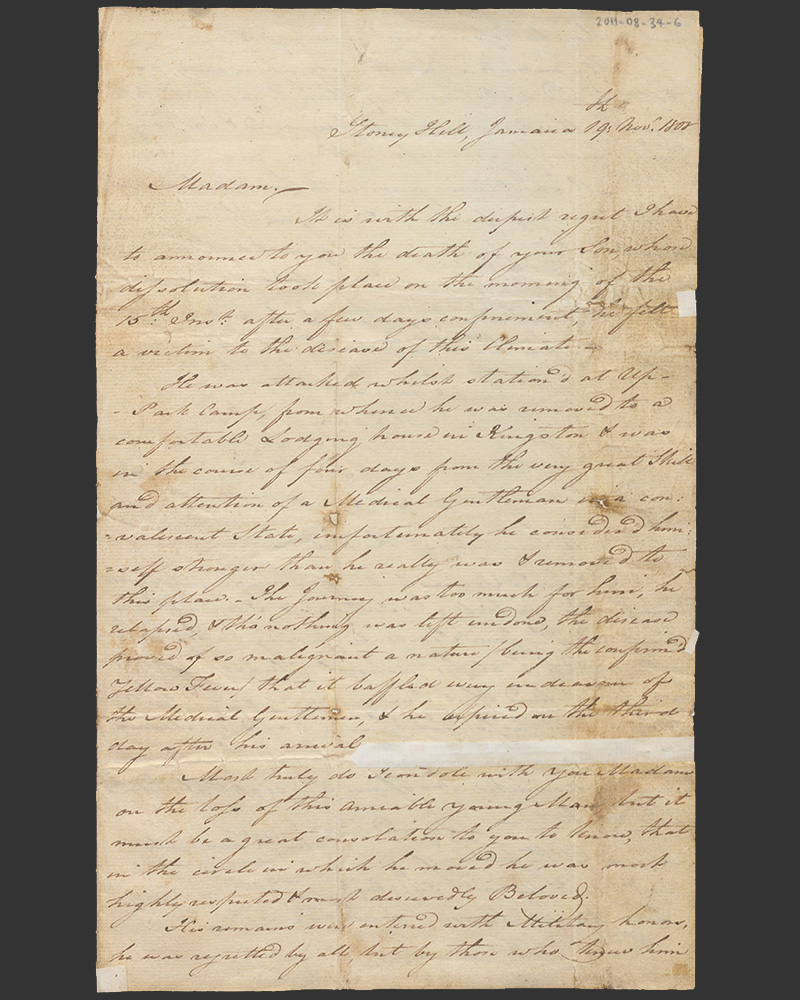 2011-08-34-6
Stoney Hill, Jamaica 19th Novr. 1808
Madam.
It is with the deepest regret I have
to announce to you the death of your Son whose
dissolution took place on the morning of the
15th Inst. after a few days confinement, he fell
a victim to the disease of this Climate.
He was attacked whilst station'd at Up-
- Park Camp, from whence he was removed to a
comfortable Lodging house in Kingston & was
in the course of four days from the very great Skill
and attention of a Medical Gentleman in a con:
=valescent State, unfortunately he consider'd him:
=self stronger than he really was & remov'd to
this place. - The Journey was too much for him, he
relapsed, & tho' nothing was left undone, the disease
proved of so malignant a nature (being the confirm'd
Yellow Fever) that it baffled every endeavour of
the Medical Gentlemen, & he expired on the third
day after his arrival
Most truly do I condole with you Madam
on the loss of this amiable young Man, but it
must be a great consolation to you to know, that
in the circle in which he moved he was most
highly respected & most deservedly Beloved.
His remains were enterred with Military honors,
he was regretted by all, but by those who knew him